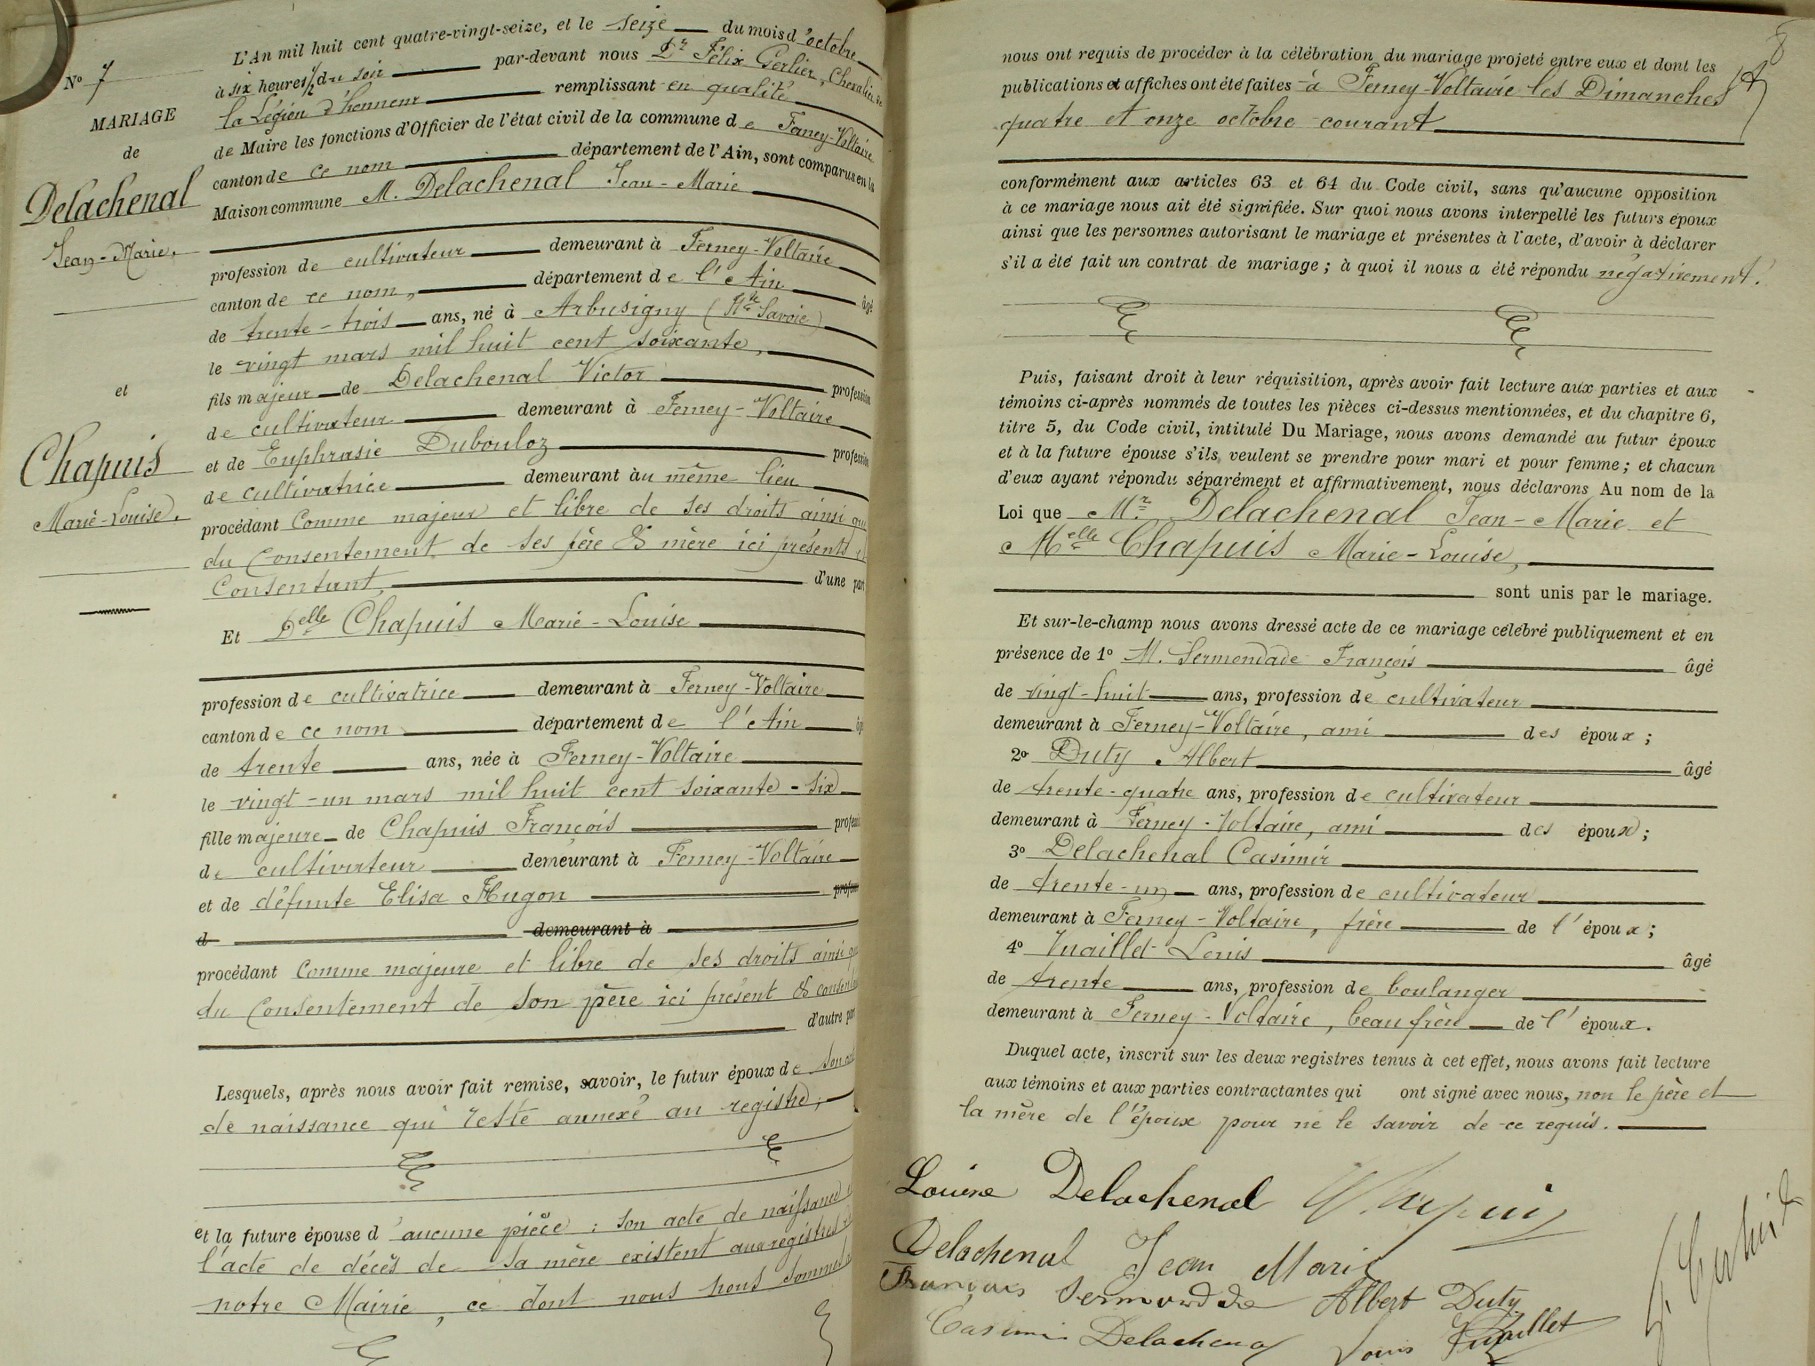 L'An mil huit cent quatre-vingt-seize, et le seize du mois d'octobre
à six heures ½ du soir par-devant nous Dr Félix Gerlier, Chevalier de
la Légion d'honneur remplissant en qualité
de Maire les fonctions d'Officier de l'état civil de la commune de Ferney-Voltaire
canton de ce nom département de l'Ain, sont comparus en la
Maison commune M. Delachenal Jean-Marie
profession de cultivateur demeurant à Ferney-Voltaire
canton de ce nom, département de l'Ain âgé
de trente-trois ans, né à Arbusigny (Hte Savoie)
le vingt mars mil huit cent soixante,
fils majeur de Delachenal Victor profession
de cultivateur demeurant à Ferney-Voltaire
et de Euphrasie Dubouloz profession
de cultivatrice demeurant au même lieu
procédant comme majeur et libre de ses droits ainsi que
du consentement de ses père & mère ici présents et
consentant, d'une part
Et Delle Chapuis Marie-Louise
profession de cultivatrice demeurant à Ferney-Voltaire
canton de ce nom département de l'Ain âgé
de trente ans, née à Ferney-Voltaire
le vingt-un mars mil huit cent soixante-six
fille majeure de Chapuis François profession
de cultivateur demeurant à Ferney-Voltaire
et de défunte Elisa Hugon profession
d demeurant à
procédant comme majeure et libre de ses droits ainsi que
du consentement de son père ici présent & consentant
d'autre part
Lesquels, après nous avoir fait remise, savoir, le futur époux de son acte
de naissance qui reste annexé au registre,
et la future épouse d'aucune pièce : son acte de naissance &
l'acte de décès de sa mère existent aux registres de
notre Mairie, ce dont nous nous sommes
No 7
MARIAGE
de
Delachenal
Jean-Marie,
et
Chapuis
Marie-Louise.
8
nous ont requis de procéder à la célébration du mariage projeté entre eux et dont les
publications et affiches ont été faites à Ferney-Voltaire les Dimanches
quatre et onze octobre courant
conformément aux articles 63 et 64 du Code civil, sans qu'aucune opposition
à ce mariage nous ait été signifiée. Sur quoi nous avons interpellé les futurs époux
ainsi que les personnes autorisant le mariage et présentes à l'acte, d'avoir à déclarer
s'il a été fait un contrat de mariage ; à quoi il nous a été répondu négativement.
Puis, faisant droit à leur réquisition, après avoir fait lecture aux parties et aux
témoins ci-après nommés de toutes les pièces ci-dessus mentionnées, et du chapitre 6,
titre 5, du Code civil, intitulé Du Mariage, nous avons demandé au futur époux
et à la future épouse s'ils veulent se prendre pour mari et pour femme ; et chacun
d'eux ayant répondu séparément et affirmativement, nous déclarons Au nom de la
Loi que Mr Delachenal Jean-Marie et
Melle Chapuis Marie-Louise,
sont unis par le mariage.
Et sur-le-champ nous avons dressé acte de ce mariage célébré publiquement et en
présence de 1o M. Sermondade François âgé
de vingt-huit ans, profession de cultivateur
demeurant à Ferney-Voltaire, ami des époux ;
2o Duty Albert âgé
de trente-quatre ans, profession de cultivateur
demeurant à Ferney-Voltaire, ami des époux ;
3o Delachenal Casimir
de trente-un ans, profession de cultivateur
demeurant à Ferney-Voltaire, frère de l'époux ;
4o Vuaillet Louis âgé
de trente ans, profession de boulanger
demeurant à Ferney-Voltaire, beau frère de l'époux.
Duquel acte, inscrit sur les deux registres tenus à cet effet, nous avons fait lecture
aux témoins et aux parties contractantes qui ont signé avec nous, non le père et
la mère de l'époux pour ne le savoir de ce requis.
Louise Delachenal Chapuis
Delachenal Jean Marie
François Sermondade Albert Duty
Casimir Delachenal Louis Vuaillet